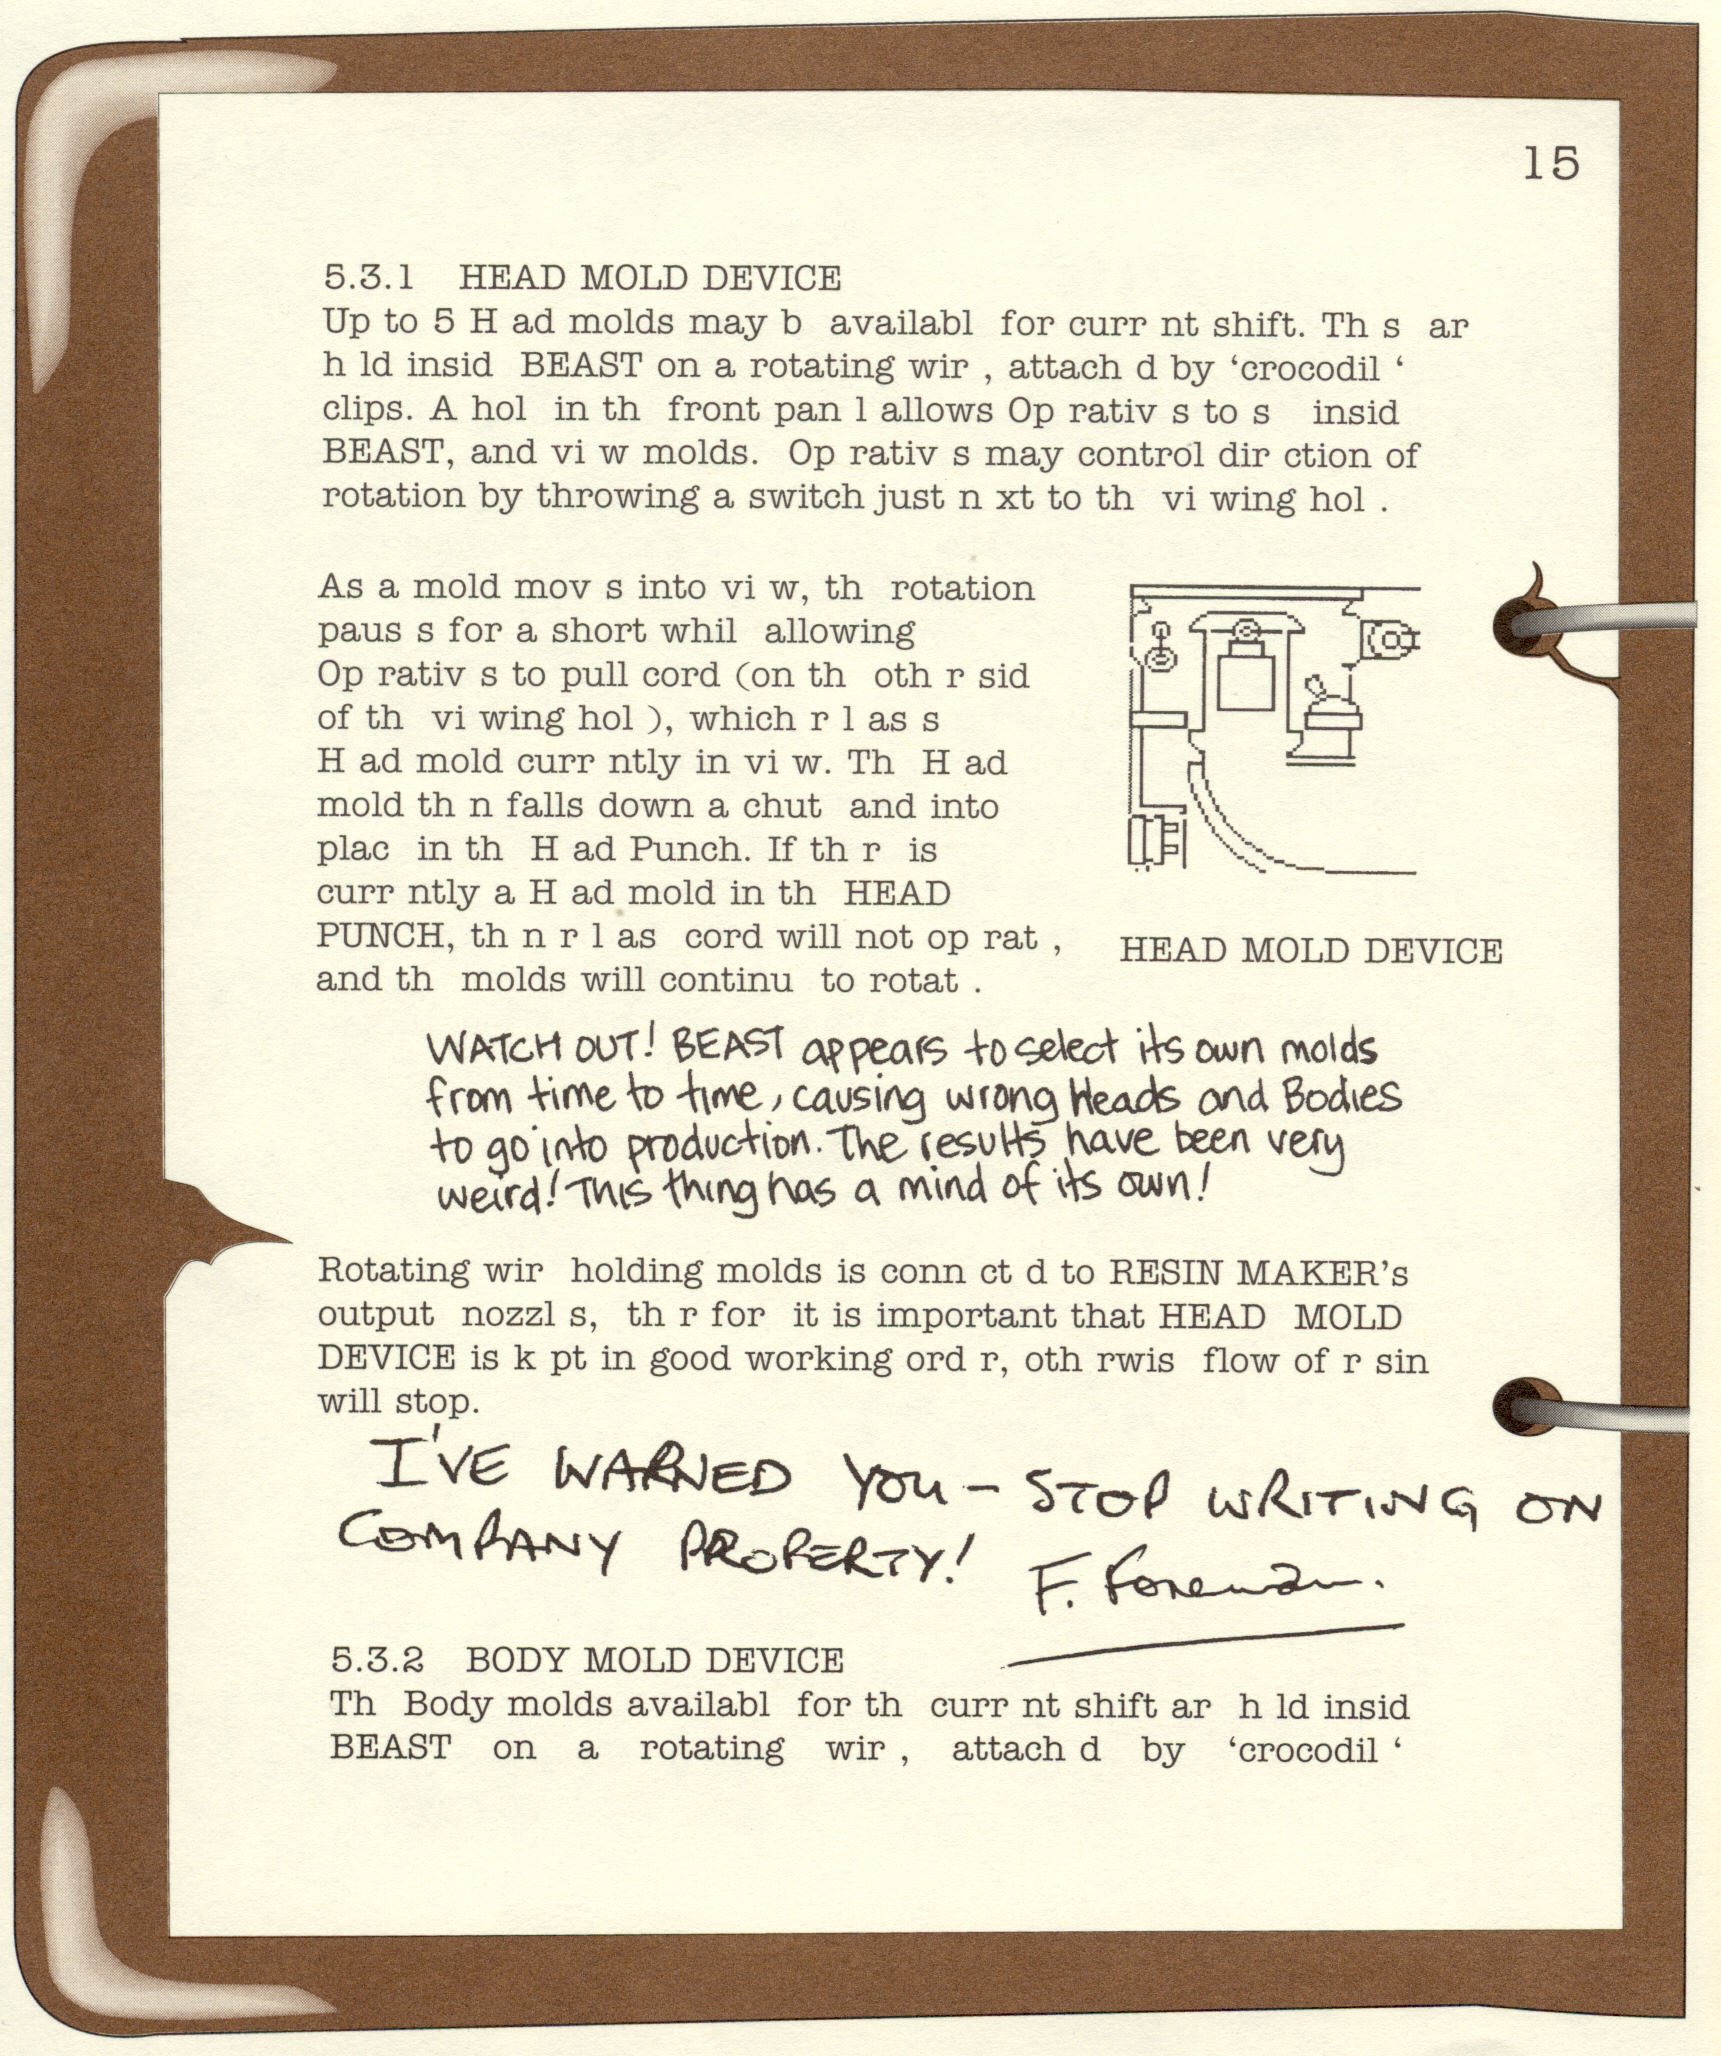 15
5.3.1 HEAD MOLD DEVICE
Up to 5 H ad molds may b  availabl  for curr nt shift. Th s  ar
h ld insid  BEAST on a rotating wir , attach d by ‘crocodil ‘
clips. A hol  in th  front pan l allows Op rativ s to s   insid
BEAST, and vi w molds.  Op rativ s may control dir ction of
rotation by throwing a switch just n xt to th  vi wing hol .
As a mold mov s into vi w, th  rotation
paus s for a short whil  allowing
Op rativ s to pull cord (on th  oth r sid
of th  vi wing hol ), which r l as s
H ad mold curr ntly in vi w. Th  H ad
mold th n falls down a chut  and into
plac  in th  H ad Punch. If th r  is
curr ntly a H ad mold in th  HEAD
PUNCH, th n r l as  cord will not op rat ,
and th  molds will continu  to rotat .
HEAD MOLD DEVICE
WATCH OUT! BEAST appears to select its own molds
from time to time, causing wrong Heads and Bodies
to go into production. The results have been very
weird! This thing has a mind of its own!
Rotating wir  holding molds is conn ct d to RESIN MAKER’s
output  nozzl s,  th r for  it is important that HEAD  MOLD
DEVICE is k pt in good working ord r, oth rwis  flow of r sin
will stop.
I'VE WARNED YOU - STOP WRITING ON
COMPANY PROPERTY!
F. Foreman.
5.3.2 BODY MOLD DEVICE
Th  Body molds availabl  for th  curr nt shift ar  h ld insid
BEAST on a rotating wir , attach d by ‘crocodil ‘